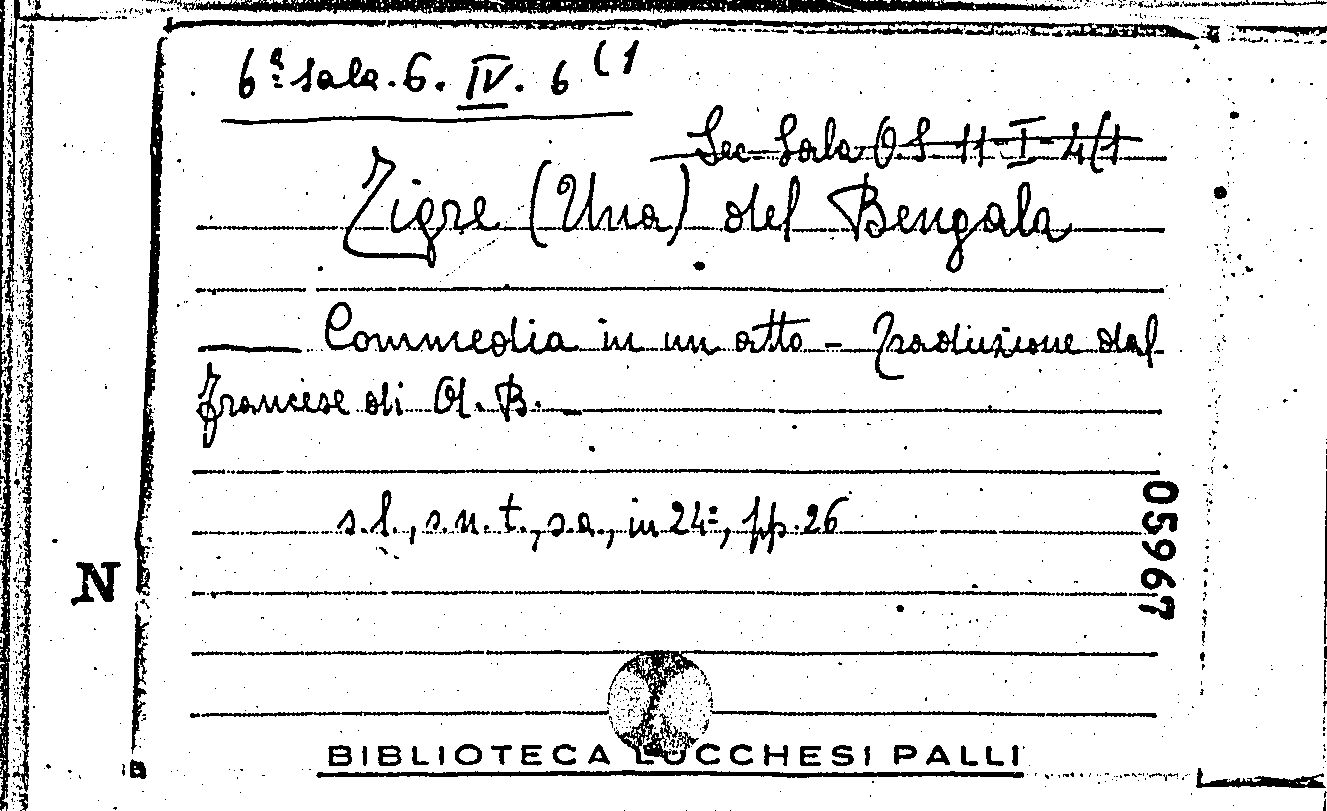 6ª Sala. 6. IV. 6 (1
Sec Sala O.S. 11-I-4(1
Tigre (Una) del Bengala
Commedia in un atto - Traduzione dal
francese di A. B.
s.l., s.n.t., s.a., in 24°, pp. 26
05967
N
BIBLIOTECA LUCCHESI PALLI